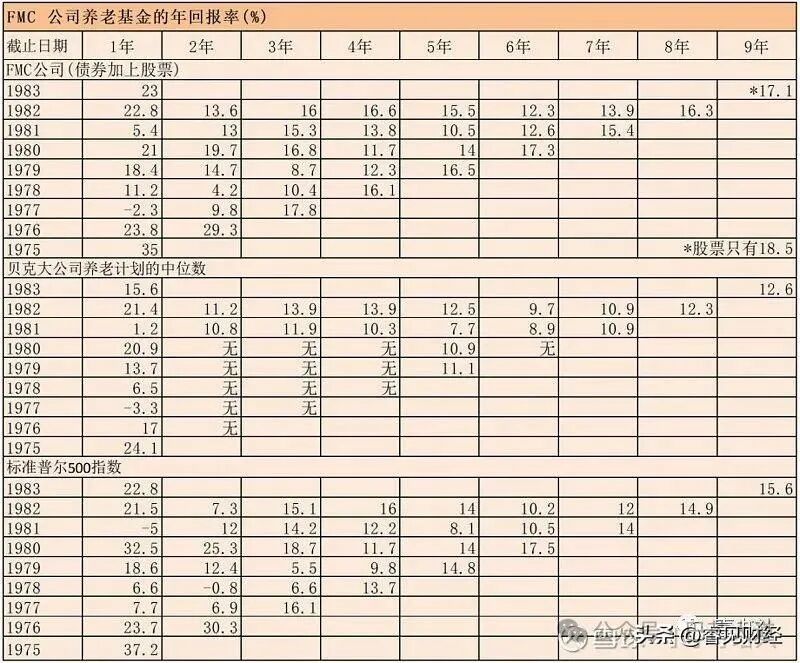 FMC 公司养老基金的年回报率(%)
截止日期 1年 2年 3年 4年 5年 6年 7年 8年 9年
FMC公司(债券加上股票)
1983 23 *17.1
1982 22.8 13.6 16 16.6 15.5 12.3 13.9 16.3
1981 5.4 13 15.3 13.8 10.5 12.6 15.4
1980 21 19.7 16.8 11.7 14 17.3
1979 18.4 14.7 8.7 12.3 16.5
1978 11.2 4.2 10.4 16.1
1977 -2.3 9.8 17.8
1976 23.8 29.3
1975 35 *股票只有18.5
贝克大公司养老计划的中位数
1983 15.6 12.6
1982 21.4 11.2 13.9 13.9 12.5 9.7 10.9 12.3
1981 1.2 10.8 11.9 10.3 7.7 8.9 10.9
1980 20.9 无 无 无 10.9 无
1979 13.7 无 无 无 11.1
1978 6.5 无 无 无
1977 -3.3 无 无
1976 17 无
1975 24.1
标准普尔500指数
1983 22.8 15.6
1982 21.5 7.3 15.1 16 14 10.2 12 14.9
1981 -5 12 14.2 12.2 8.1 10.5 14
1980 32.5 25.3 18.7 11.7 14 17.5
1979 18.6 12.4 5.5 9.8 14.8
1978 6.6 -0.8 6.6 13.7
1977 7.7 6.9 16.1
1976 23.7 30.3
1975 37.2
头条 @睿见财经